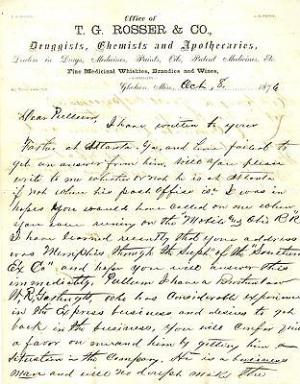 Office of
T. G. ROSSER & CO.,
Druggists, Chemists and Apothecaries,
Dealers in Drugs, Medicines, Paints, Oils, Patent Medicines, Etc.
Fine Medicinal Whiskies, Brandies and Wines,
Miss, Oct 8, 1876
Dear Pullum,
I have written to your
Father at Atlanta Ga, and have failed to
get an answer from him. Will you please
write to me whether or not he is at Atlanta
if not where his post Office is. I was in
hopes you would have called on me when
you were running on the Mobile and Ohio R R
I have learned recently that your address
was Memphis through the Supt of the "Southern
Ex Co" and hope you will answer this
immediately. Pullum I have a Brotherlaw
W. R. who has considerable experience
in the Express business and desires to get
back in the business, you will confer quite
a favor on me and him by getting him a
situation in the Company. He is a business
man and will no doubt make the